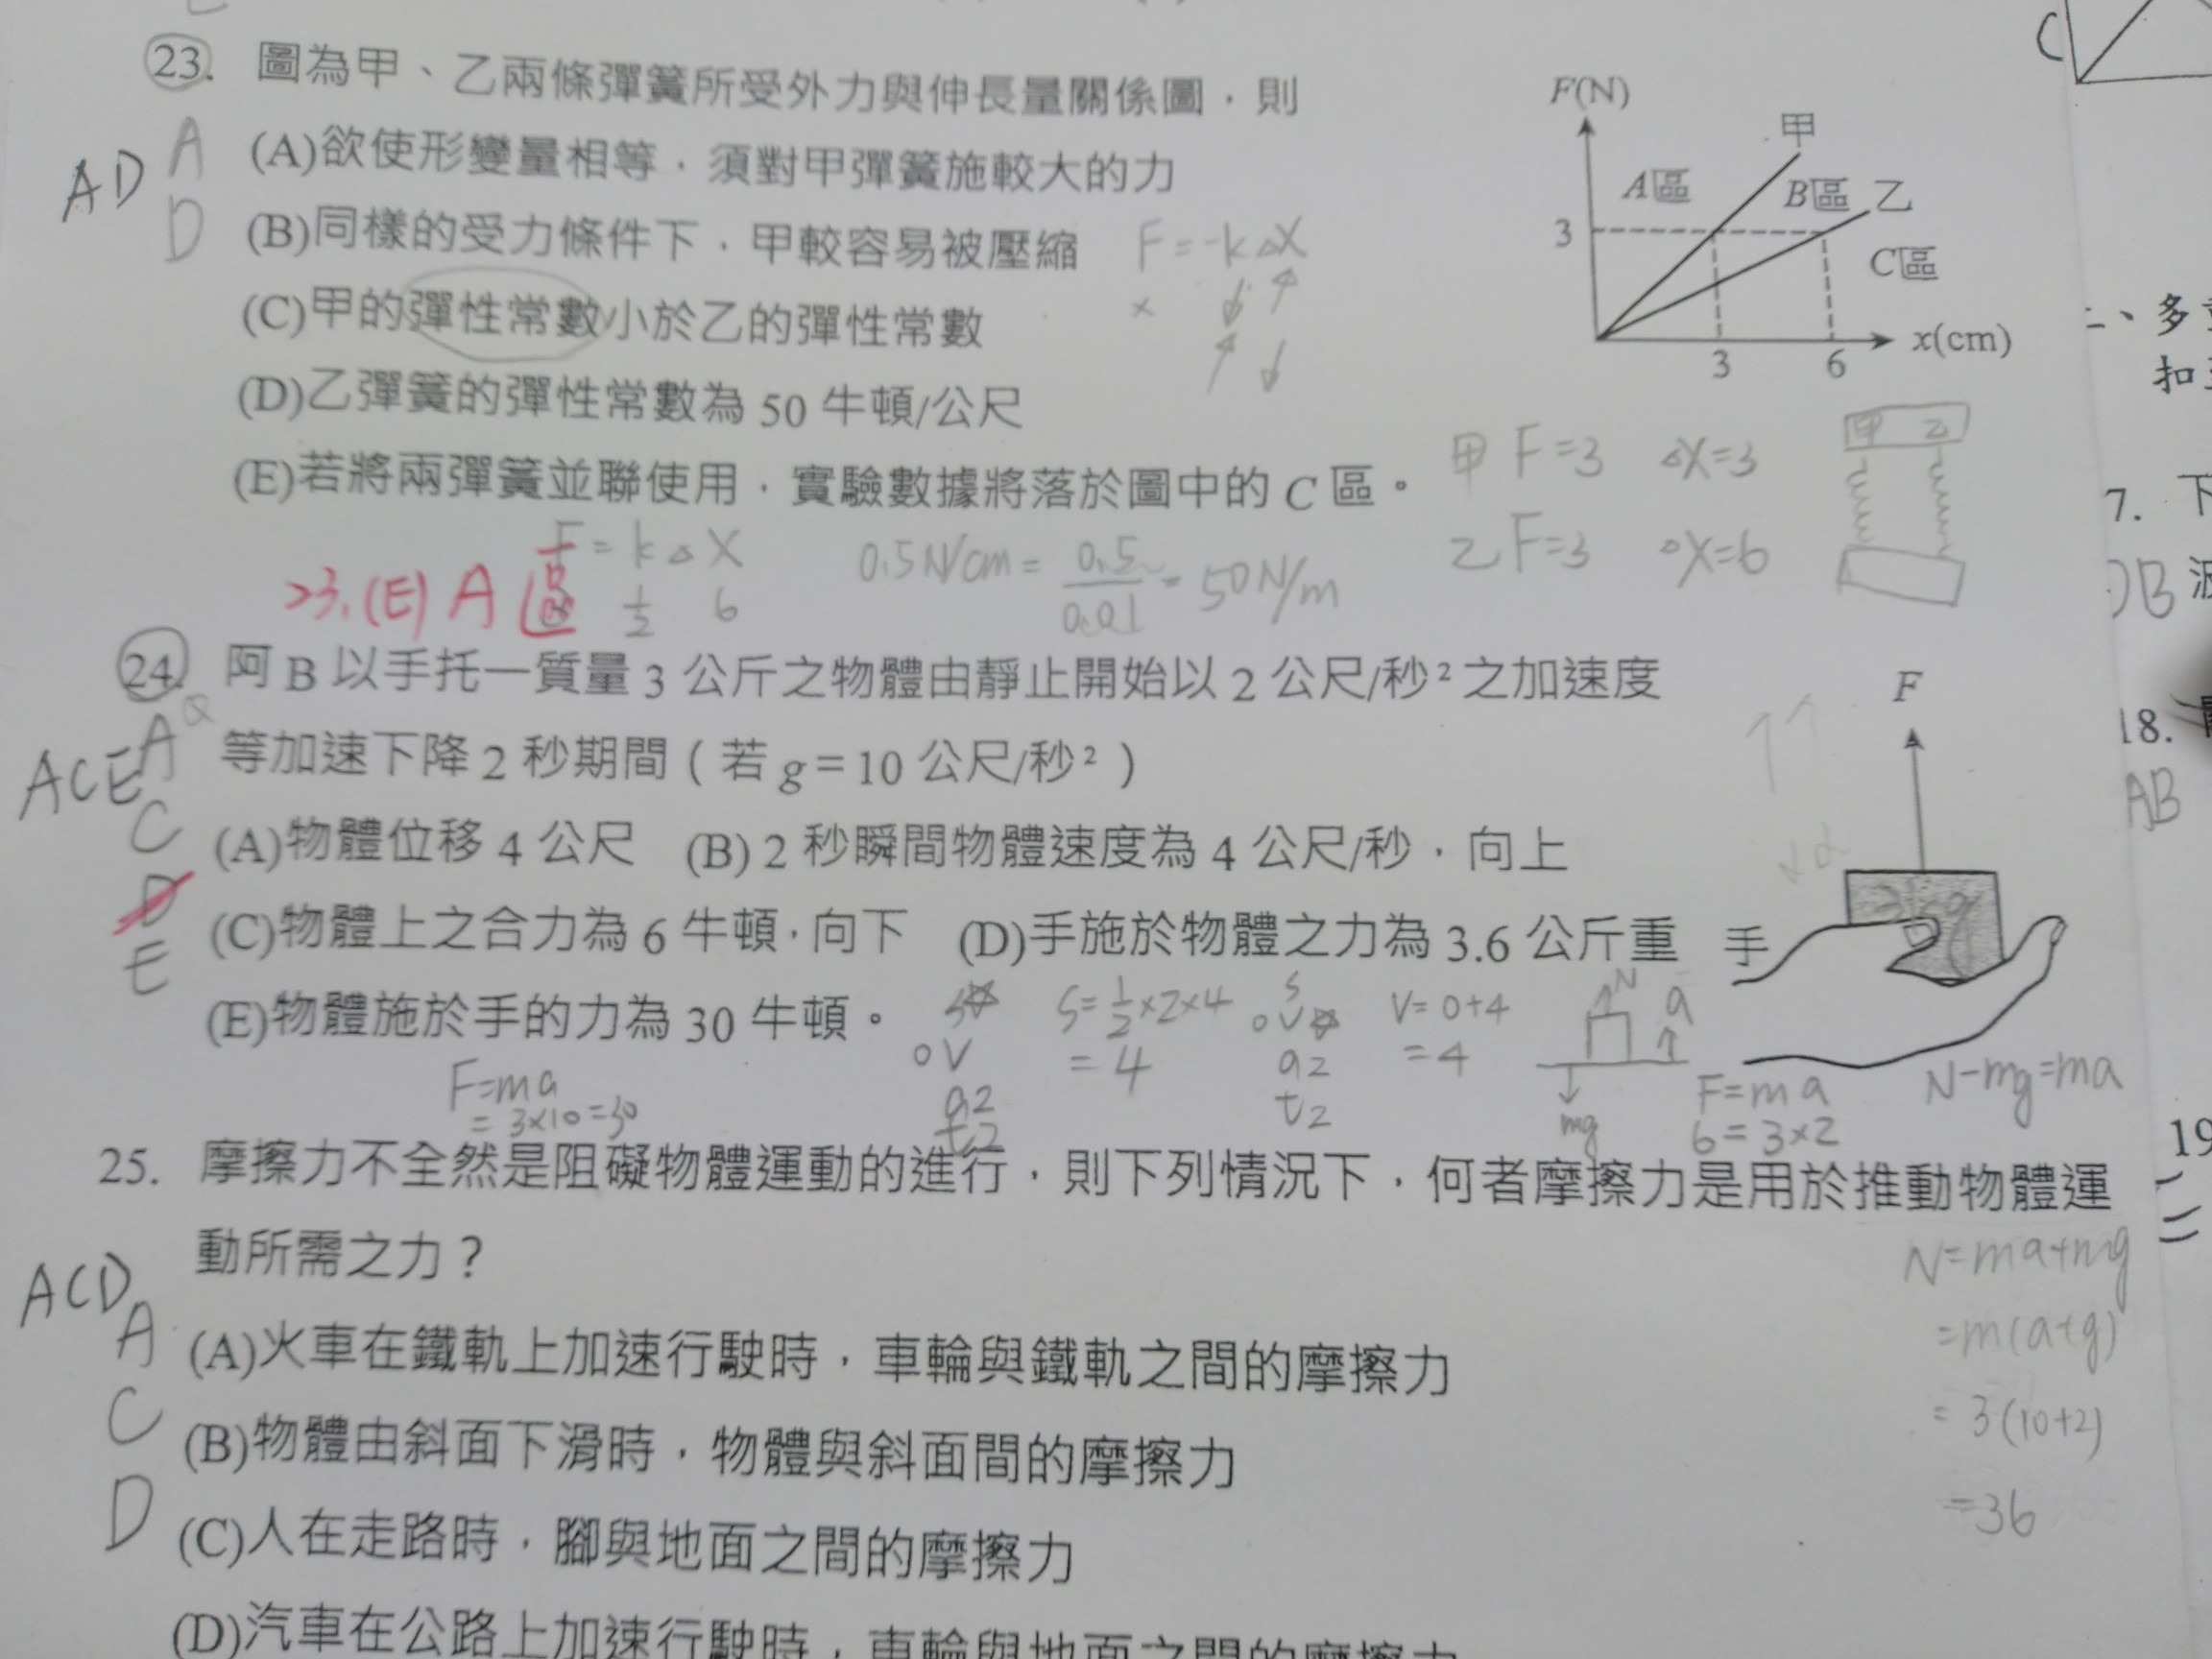 23. 圖為甲、乙兩條彈簧所受外力與伸長量關係圖，則
AD
A
D
(A)欲使形變量相等，須對甲彈簧施較大的力
(B)同樣的受力條件下，甲較容易被壓縮
(C)甲的彈性常數小於乙的彈性常數
(D)乙彈簧的彈性常數為 50 牛頓/公尺
(E)若將兩彈簧並聯使用，實驗數據將落於圖中的 C 區。
F(N)
甲
A區
B區
乙
3
C區
x(cm)
3
6
F = -k△X
甲 F=3 △X=3
乙 F=3 △X=6
甲 乙
F = k△X
1/2 6
0.5N/cm = 0.5/0.01 = 50N/m
23.(E) A 區
24. 阿 B 以手托一質量 3 公斤之物體由靜止開始以 2 公尺/秒² 之加速度
等加速下降 2 秒期間（若 g = 10 公尺/秒²）
ACE
A
C
D
E
(A)物體位移 4 公尺 (B) 2 秒瞬間物體速度為 4 公尺/秒，向上
(C)物體上之合力為 6 牛頓，向下 (D)手施於物體之力為 3.6 公斤重
(E)物體施於手的力為 30 牛頓。
F
手
3kg
F=ma
= 3×10=30
0V
a2
t2
S=1/2×2×4
= 4
S
0V
a2
t2
V= 0+4
= 4
N
a
mg
F=ma
6=3×2
N-mg=ma
N=ma+mg
=m(a+g)
= 3(10+2)
=36
25. 摩擦力不全然是阻礙物體運動的進行，則下列情況下，何者摩擦力是用於推動物體運
動所需之力？
ACD
A
C
D
(A)火車在鐵軌上加速行駛時，車輪與鐵軌之間的摩擦力
(B)物體由斜面下滑時，物體與斜面間的摩擦力
(C)人在走路時，腳與地面之間的摩擦力
(D)汽車在公路上加速行駛時，車輪與地面之間的摩擦力
C
、多
扣
7. 下
DB
18.
AB
19